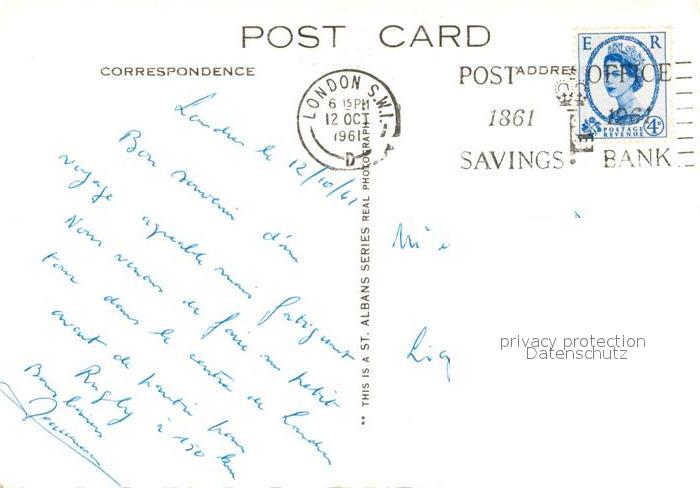 POST CARD
CORRESPONDENCE
ADDRE
LONDON S.W.1.
6 15PM
12 OCT
1961
D
POST OFFICE
1861 1961
SAVINGS BANK
E R
POSTAGE
REVENUE
4D
Londres le 12/10/61
Bon souvenir d'un
voyage agréable mais fatiguant
Nous venons de faire un petit
tour dans le centre de Londres
avant de partir pour
Rugby à 150 km
Bons baisers
** THIS IS A ST. ALBANS SERIES REAL PHOTOGRAPH
privacy protection
Datenschutz